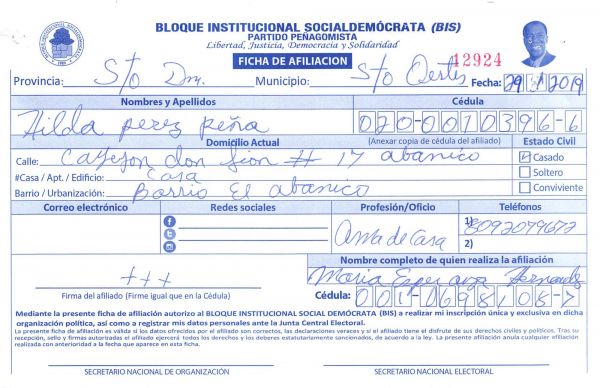 BLOQUE INSTITUCIONAL SOCIALDEMÓCRATA (BIS)
PARTIDO PEÑAGOMISTA
Libertad, Justicia, Democracia y Solidaridad
FICHA DE AFILIACION
12924
Provincia: Sto Dm. Municipio: Sto Oeste Fecha: 29 1 2019
Nombres y Apellidos Cédula
Hilda perez peña 020-0010396-6
Domicilio Actual (Anexar copia de cédula del afiliado) Estado Civil
Calle: Callejon don # 17 abanico Casado
#Casa / Apt. / Edificio: Casa Soltero
Barrio / Urbanización: Barrio El abanico Conviviente
Correo electrónico Redes sociales Profesión/Oficio Teléfonos
1) 8092079672
Ama de Casa 2)
Nombre completo de quien realiza la afiliación
+++ Maria Esperanza Hernandez
Firma del afiliado (Firme igual que en la Cédula) Cédula: 001-0698108-7
Mediante la presente ficha de afiliación autorizo al BLOQUE INSTITUCIONAL SOCIAL DEMÓCRATA (BIS) a realizar mi inscripción única y exclusiva en dicha
organización política, así como a registrar mis datos personales ante la Junta Central Electoral.
La presente ficha de afiliación es válida si los datos ofrecidos por el afiliado son correctos, las declaraciones veraces y si el afiliado tiene el disfrute de sus derechos civiles y políticos. Tras su
recepción, sello y firmas autorizadas el afiliado ejercerá todos los derechos y los deberes estatutariamente sancionados, de acuerdo a la ley. La presente afiliación anula cualquier afiliación
realizada con anterioridad a la fecha que aparece en esta ficha.
SECRETARIO NACIONAL DE ORGANIZACIÓN SECRETARIO NACIONAL ELECTORAL